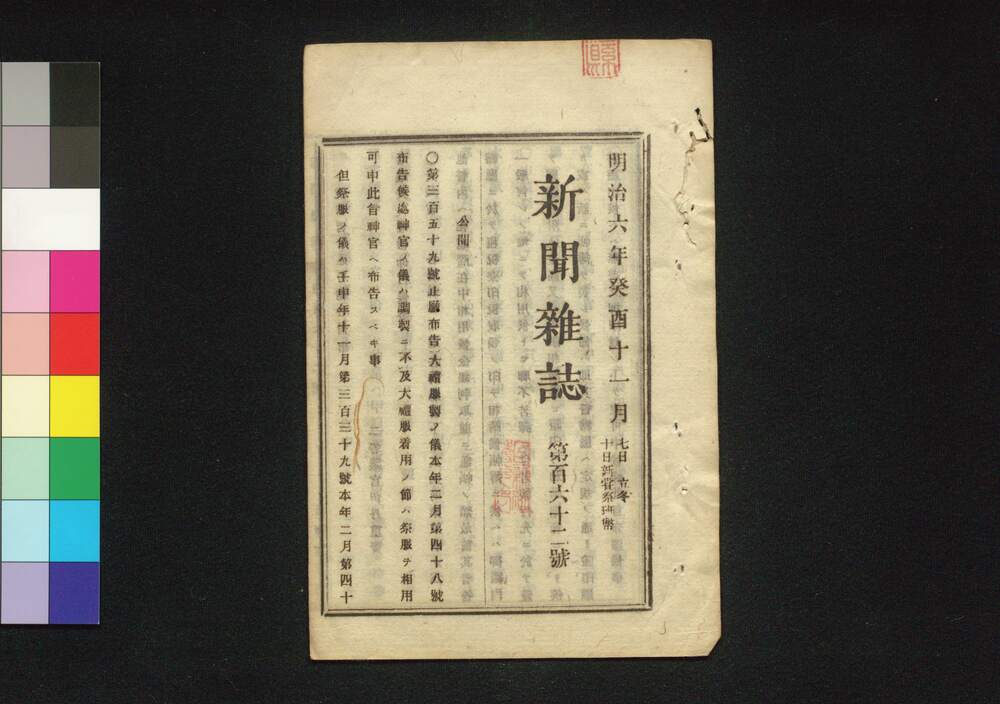 明治六年癸酉十一月
七日 立冬
十日新嘗祭班幣
新聞雜誌
第百六十二號
公聞
〇第三百五十九號正廳布告大禮服製ノ儀本年二月第四十八號
布告候處神官ノ儀ハ調製ニ不及大禮服着用ノ節ハ祭服ヲ相用
可申此旨神官ヘ布告スベキ事
但祭服ノ儀ハ壬申年十一月第三百三十九號本年二月第四十